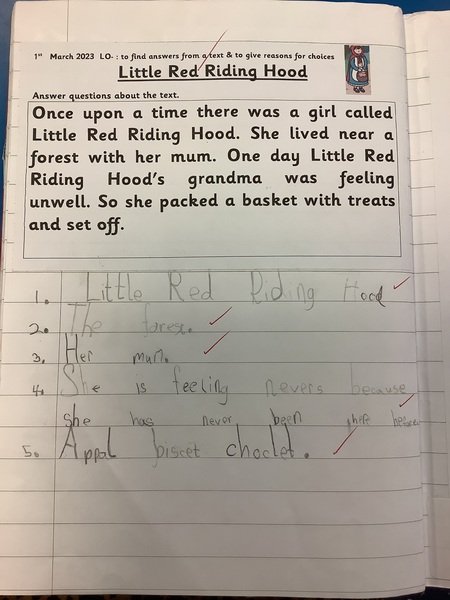 1st March 2023 LO- : to find answers from a text & to give reasons for choices
Little Red Riding Hood
Answer questions about the text.
Once upon a time there was a girl called
Little Red Riding Hood. She lived near a
forest with her mum. One day Little Red
Riding Hood's grandma was feeling
unwell. So she packed a basket with treats
and set off.
1. Little Red Riding Hood
2. The forest.
3. Her mum.
4. She is feeling nevers because
she has never been there before
5. Appal biscet choclet.